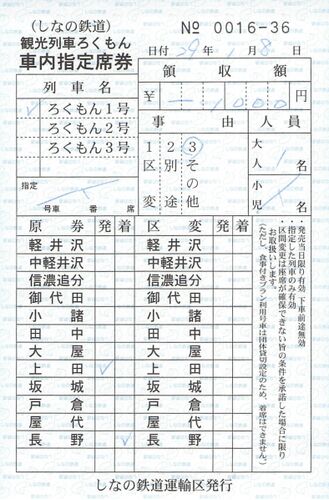 （しなの鉄道）
観光列車ろくもん
車内指定席券
№ 0016-36
日付 29年 1月 8日
領収額
￥ー1000円
列車名
✓ ろくもん1号
ろくもん2号
ろくもん3号
事由
1区変
2別途
③その他
人員
大人 1名
小児 名
指定
号車 番 席
原券 発 着
軽井沢
中軽井沢
信濃追分
御代田
小諸
田中
大屋
上田 ✓
坂城
戸倉
屋代
長野 ✓
区変 発 着
軽井沢
中軽井沢
信濃追分
御代田
小諸
田中
大屋
上田
坂城
戸倉
屋代
長野
・発売当日限り有効 下車前途無効
・指定した列車のみ有効
・区間変更は座席が確保できない旨の条件を承諾した場合に限り
お取扱いします。
（ただし、食事付きプラン利用号車は団体貸切設定のため、着席はできません。）
しなの鉄道運輸区発行